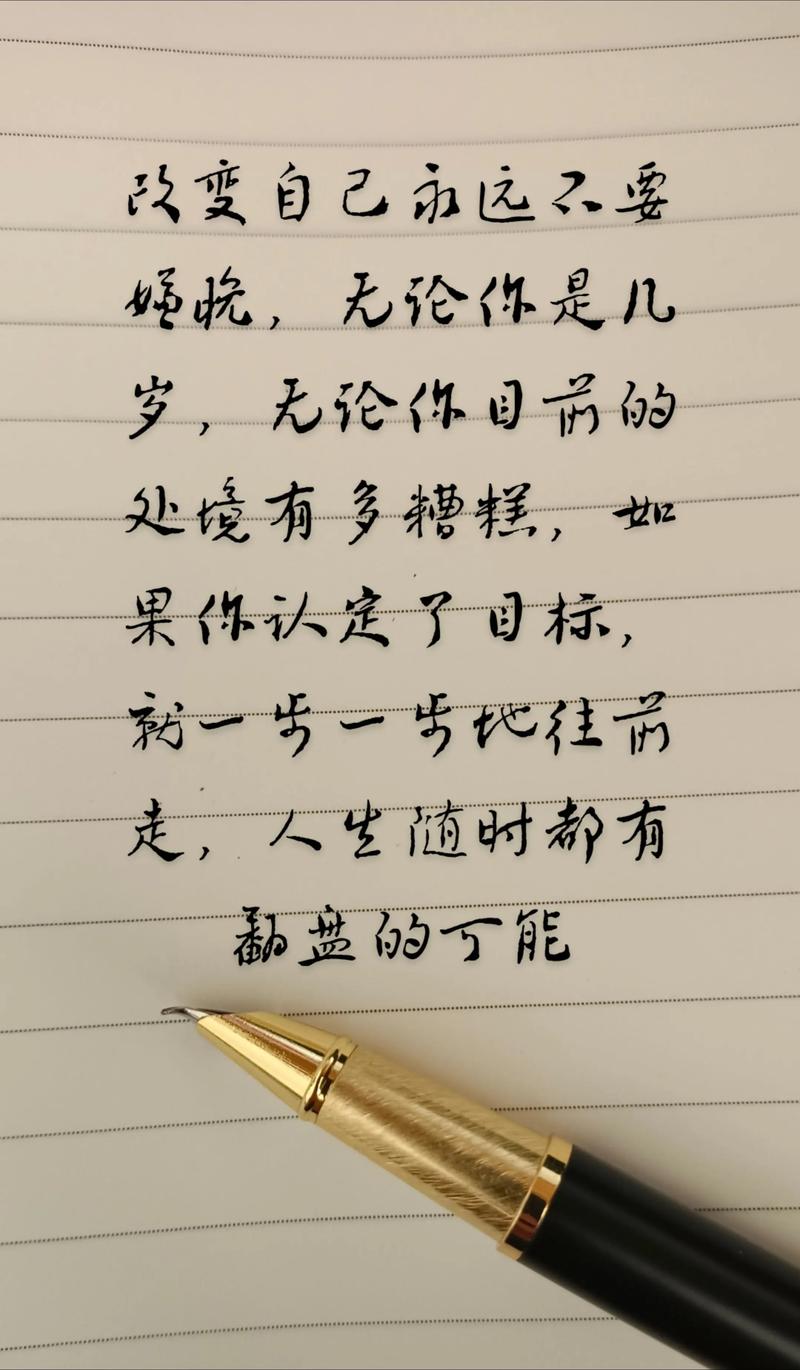 改变自己永远不要
嫌晚，无论你是几
岁，无论你目前的
处境有多糟糕，如
果你认定了目标，
就一步一步地往前
走，人生随时都有
翻盘的可能